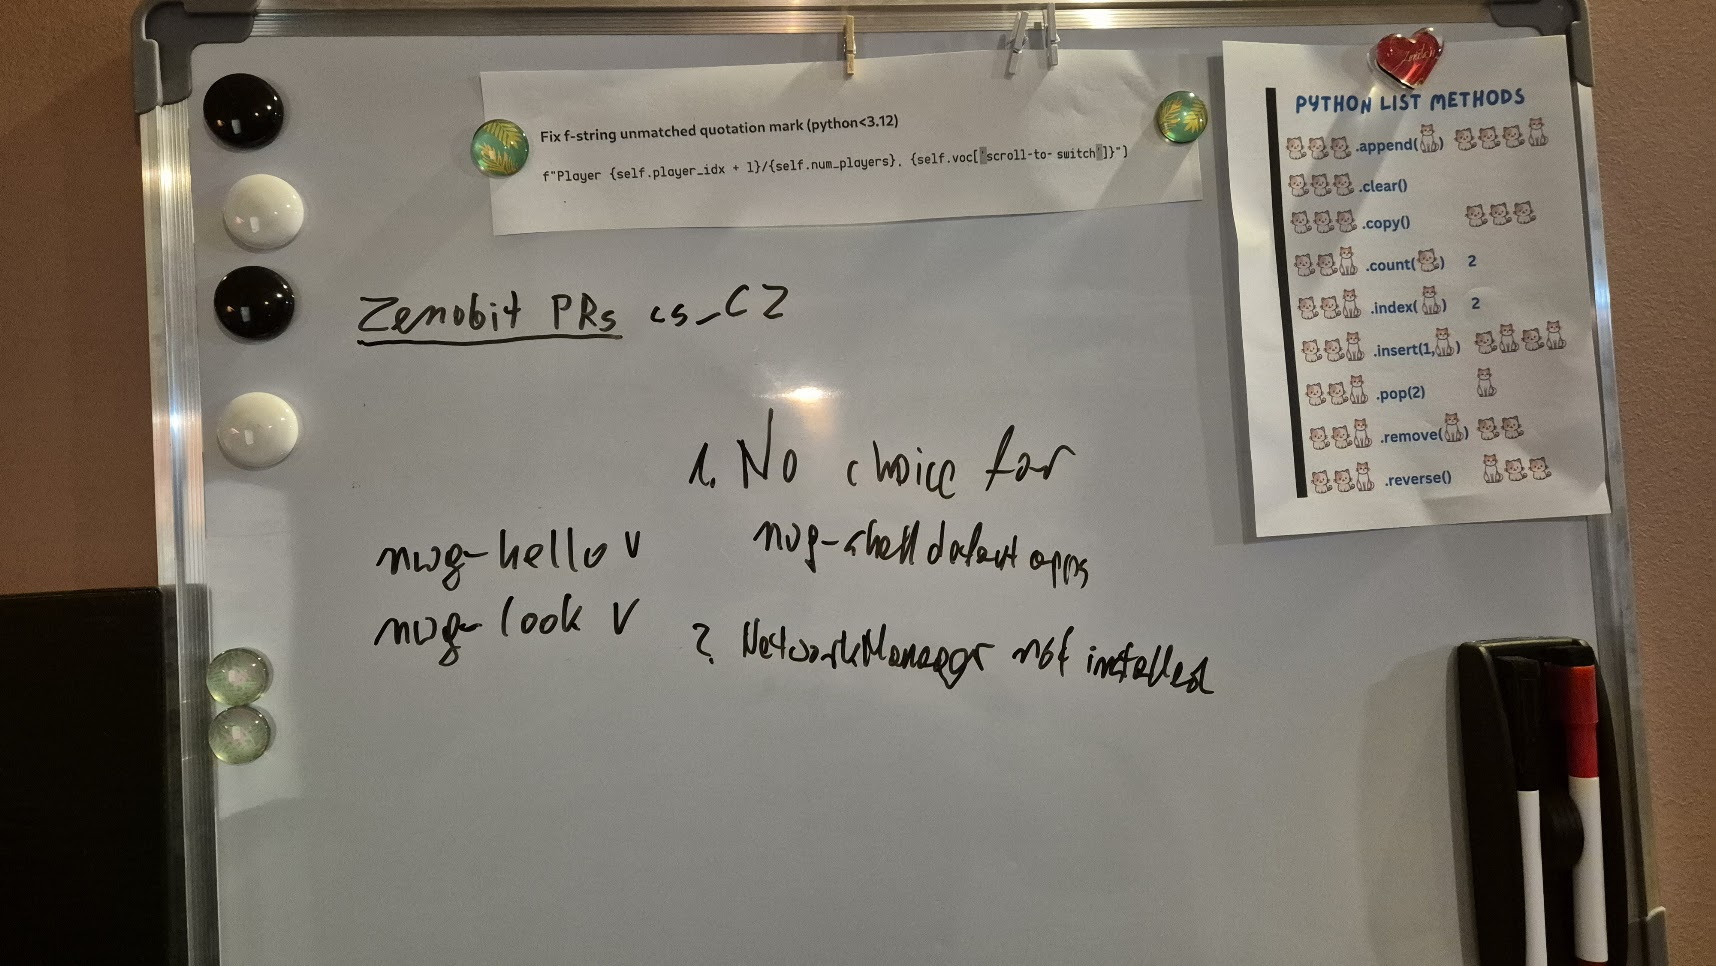 Fix f-string unmatched quotation mark (python<3.12)
f"Player {self.player_idx + 1}/{self.num_players}, {self.voc['scroll-to- switch']}")
PYTHON LIST METHODS
.append( )
.clear()
.copy()
.count( ) 2
.index( ) 2
.insert(1, )
.pop(2)
.remove( )
.reverse()
Zenobit PRs cs_CZ
nwg-hello V
nwg-look V
1. No choice for
nwg-shell default apps
2. NetworkManager not installed